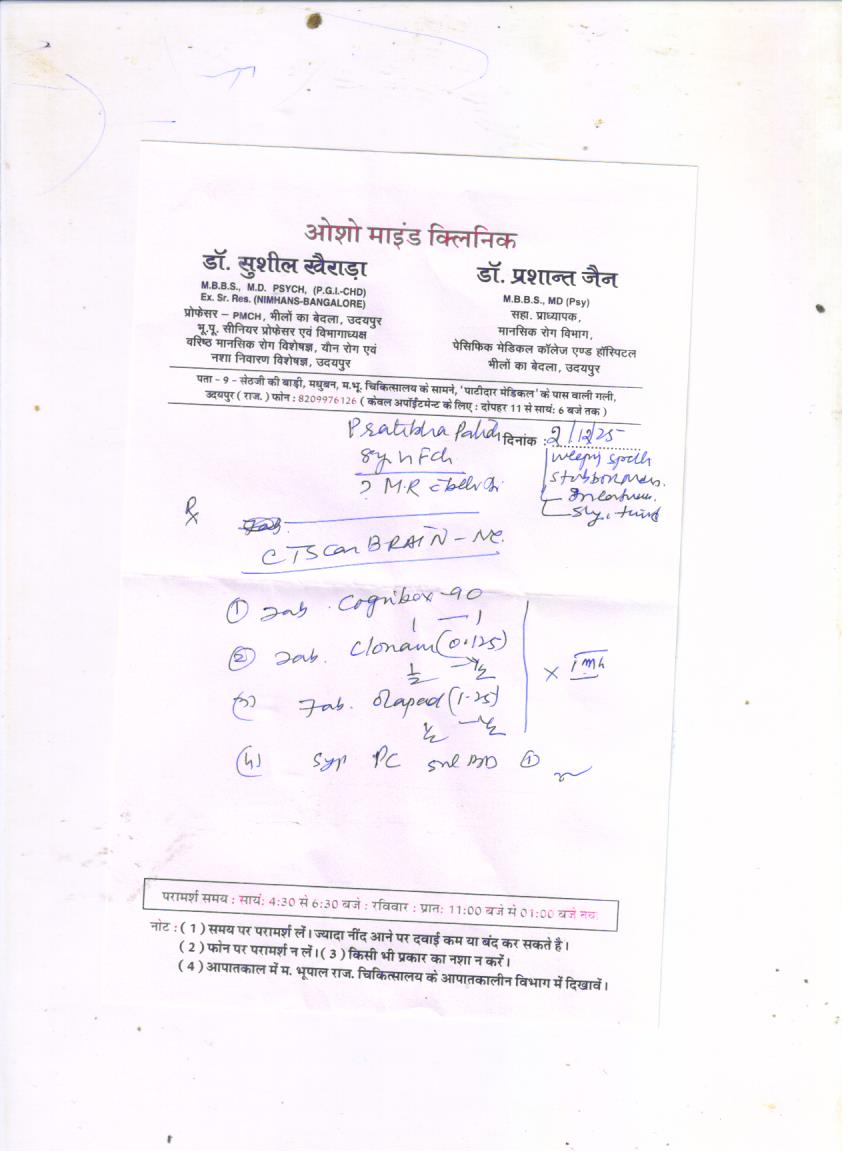 ओशो माइंड क्लिनिक
डॉ. सुशील खैराड़ा
M.B.B.S., M.D. PSYCH, (P.G.I.-CHD)
Ex. Sr. Res. (NIMHANS-BANGALORE)
प्रोफेसर – PMCH, भीलों का बेदला, उदयपुर
भू.पू. सीनियर प्रोफेसर एवं विभागाध्यक्ष
वरिष्ठ मानसिक रोग विशेषज्ञ, यौन रोग एवं
नशा निवारण विशेषज्ञ, उदयपुर
डॉ. प्रशान्त जैन
M.B.B.S., MD (Psy)
सहा. प्राध्यापक,
मानसिक रोग विभाग,
पेसिफिक मेडिकल कॉलेज एण्ड हॉस्पिटल
भीलों का बेदला, उदयपुर
पता – 9 – सेठजी की बाड़ी, मधुबन, म.भू. चिकित्सालय के सामने, 'पाटीदार मेडिकल' के पास वाली गली,
उदयपुर ( राज. ) फोन : 8209976126 ( केवल अपॉईंटमेन्ट के लिए : दोपहर 11 से सायं: 6 बजे तक )
Pratibha दिनांक : 2/12/25
8y FCh. weepy spells
? M.R stubbornness.
Rx
CT Scan BRAIN – NC.
① Tab. Cognibox-90
1 — 1
② Tab. Clonam (0.125)
½ — ½
(3) Tab. (1.25)
½ — ½
x 1 mh
(4) Syp PC 5ml BD ①
परामर्श समय : सायं: 4:30 से 6:30 बजे : रविवार : प्रात: 11:00 बजे से 01:00 बजे तक
नोट : ( 1 ) समय पर परामर्श लें। ज्यादा नींद आने पर दवाई कम या बंद कर सकते है।
( 2 ) फोन पर परामर्श न लें। ( 3 ) किसी भी प्रकार का नशा न करें।
( 4 ) आपातकाल में म. भूपाल राज. चिकित्सालय के आपातकालीन विभाग में दिखावें।